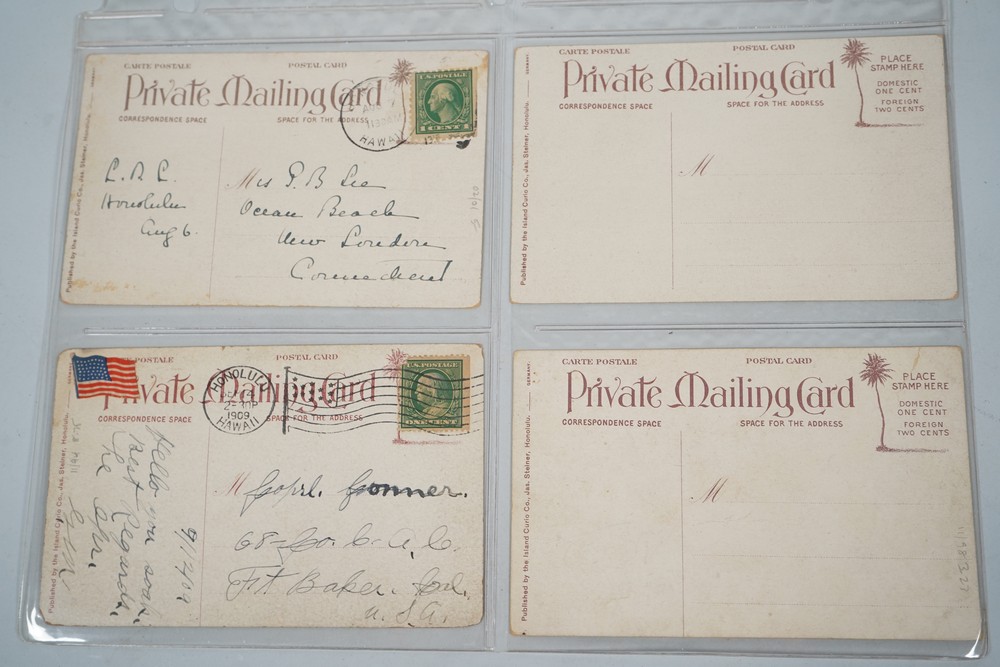 CARTE POSTALE
POSTAL CARD
Private Mailing Card
CORRESPONDENCE SPACE
SPACE FOR THE ADDRESS
U.S. POSTAGE
1 CENT 1
HAWAII
Honolulu
Aug 6.
Mrs G. B Lee
Ocean Beach
New London
Connecticut
Published by the Island Curio Co., Jas. Steiner, Honolulu.
GERMANY.
CARTE POSTALE
POSTAL CARD
Private Mailing Card
CORRESPONDENCE SPACE
SPACE FOR THE ADDRESS
PLACE
STAMP HERE
DOMESTIC
ONE CENT
FOREIGN
TWO CENTS
M
Published by the Island Curio Co., Jas. Steiner, Honolulu.
GERMANY.
POSTALE
POSTAL CARD
Private Mailing Card
CORRESPONDENCE SPACE
SPACE FOR THE ADDRESS
HONOLULU
1909
HAWAII
U.S. POSTAGE
ONE CENT
Hello you
Best Regards.
9/12/09
M
68
Ft Baker. Cal.
U.S.A.
Published by the Island Curio Co., Jas. Steiner, Honolulu.
CARTE POSTALE
POSTAL CARD
Private Mailing Card
CORRESPONDENCE SPACE
SPACE FOR THE ADDRESS
PLACE
STAMP HERE
DOMESTIC
ONE CENT
FOREIGN
TWO CENTS
M
Published by the Island Curio Co., Jas. Steiner, Honolulu.
GERMANY.